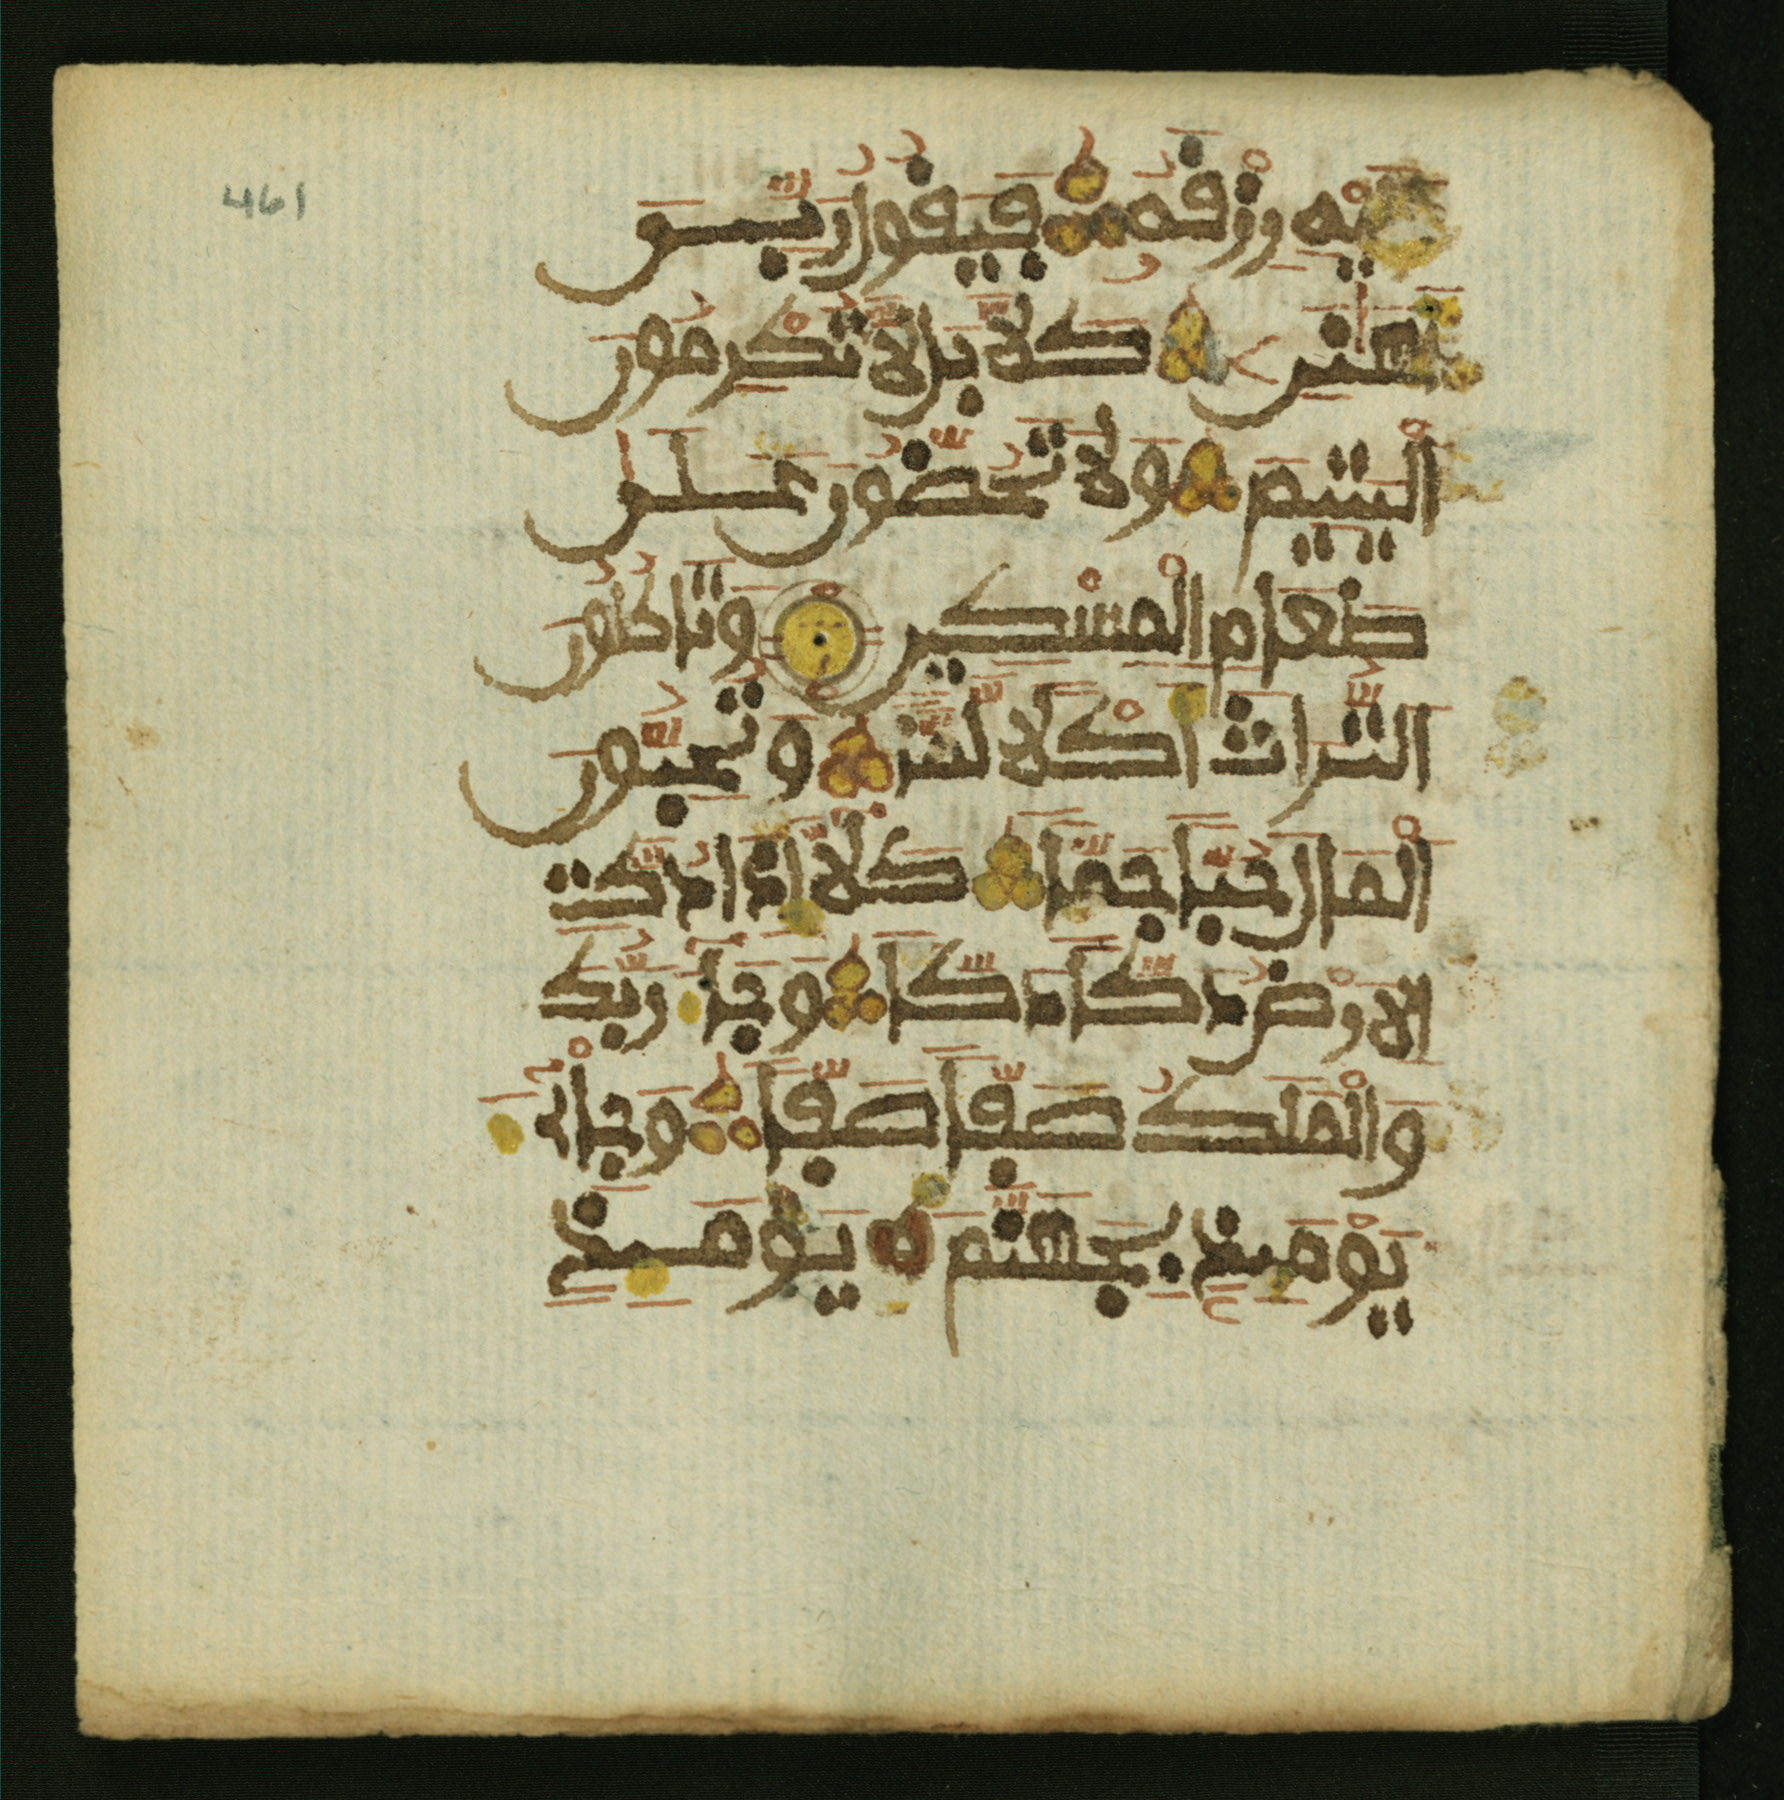 461
عليه رزقه فيقول ربى
أهنن كلا بل لا تكرمون
اليتيم ولا تحضون على
طعام المسكين وتاكلون
التراث اكلا لما وتحبون
المال حبا جما كلا اذا دكت
الارض دكا دكا وجا ربك
والملك صفا صفا وجاىء
يومئذ بجهنم يومئذ